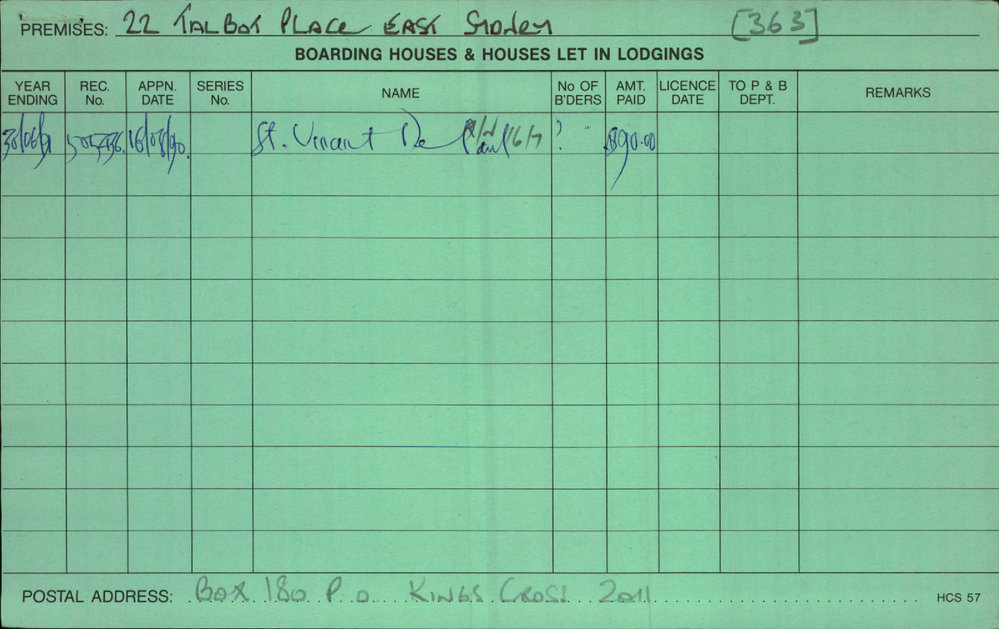 PREMISES: 22 TALBOT PLACE EAST SYDNEY [363]
BOARDING HOUSES & HOUSES LET IN LODGINGS
YEAR ENDING REC. No. APPN. DATE SERIES No. NAME No OF B'DERS AMT. PAID LICENCE DATE TO P & B DEPT. REMARKS
30/06/91 16/08/90. St. Vincent De Paul 16/7 ? $90.00
POSTAL ADDRESS: BOX 180 P.O. KINGS CROSS 2011 HCS 57